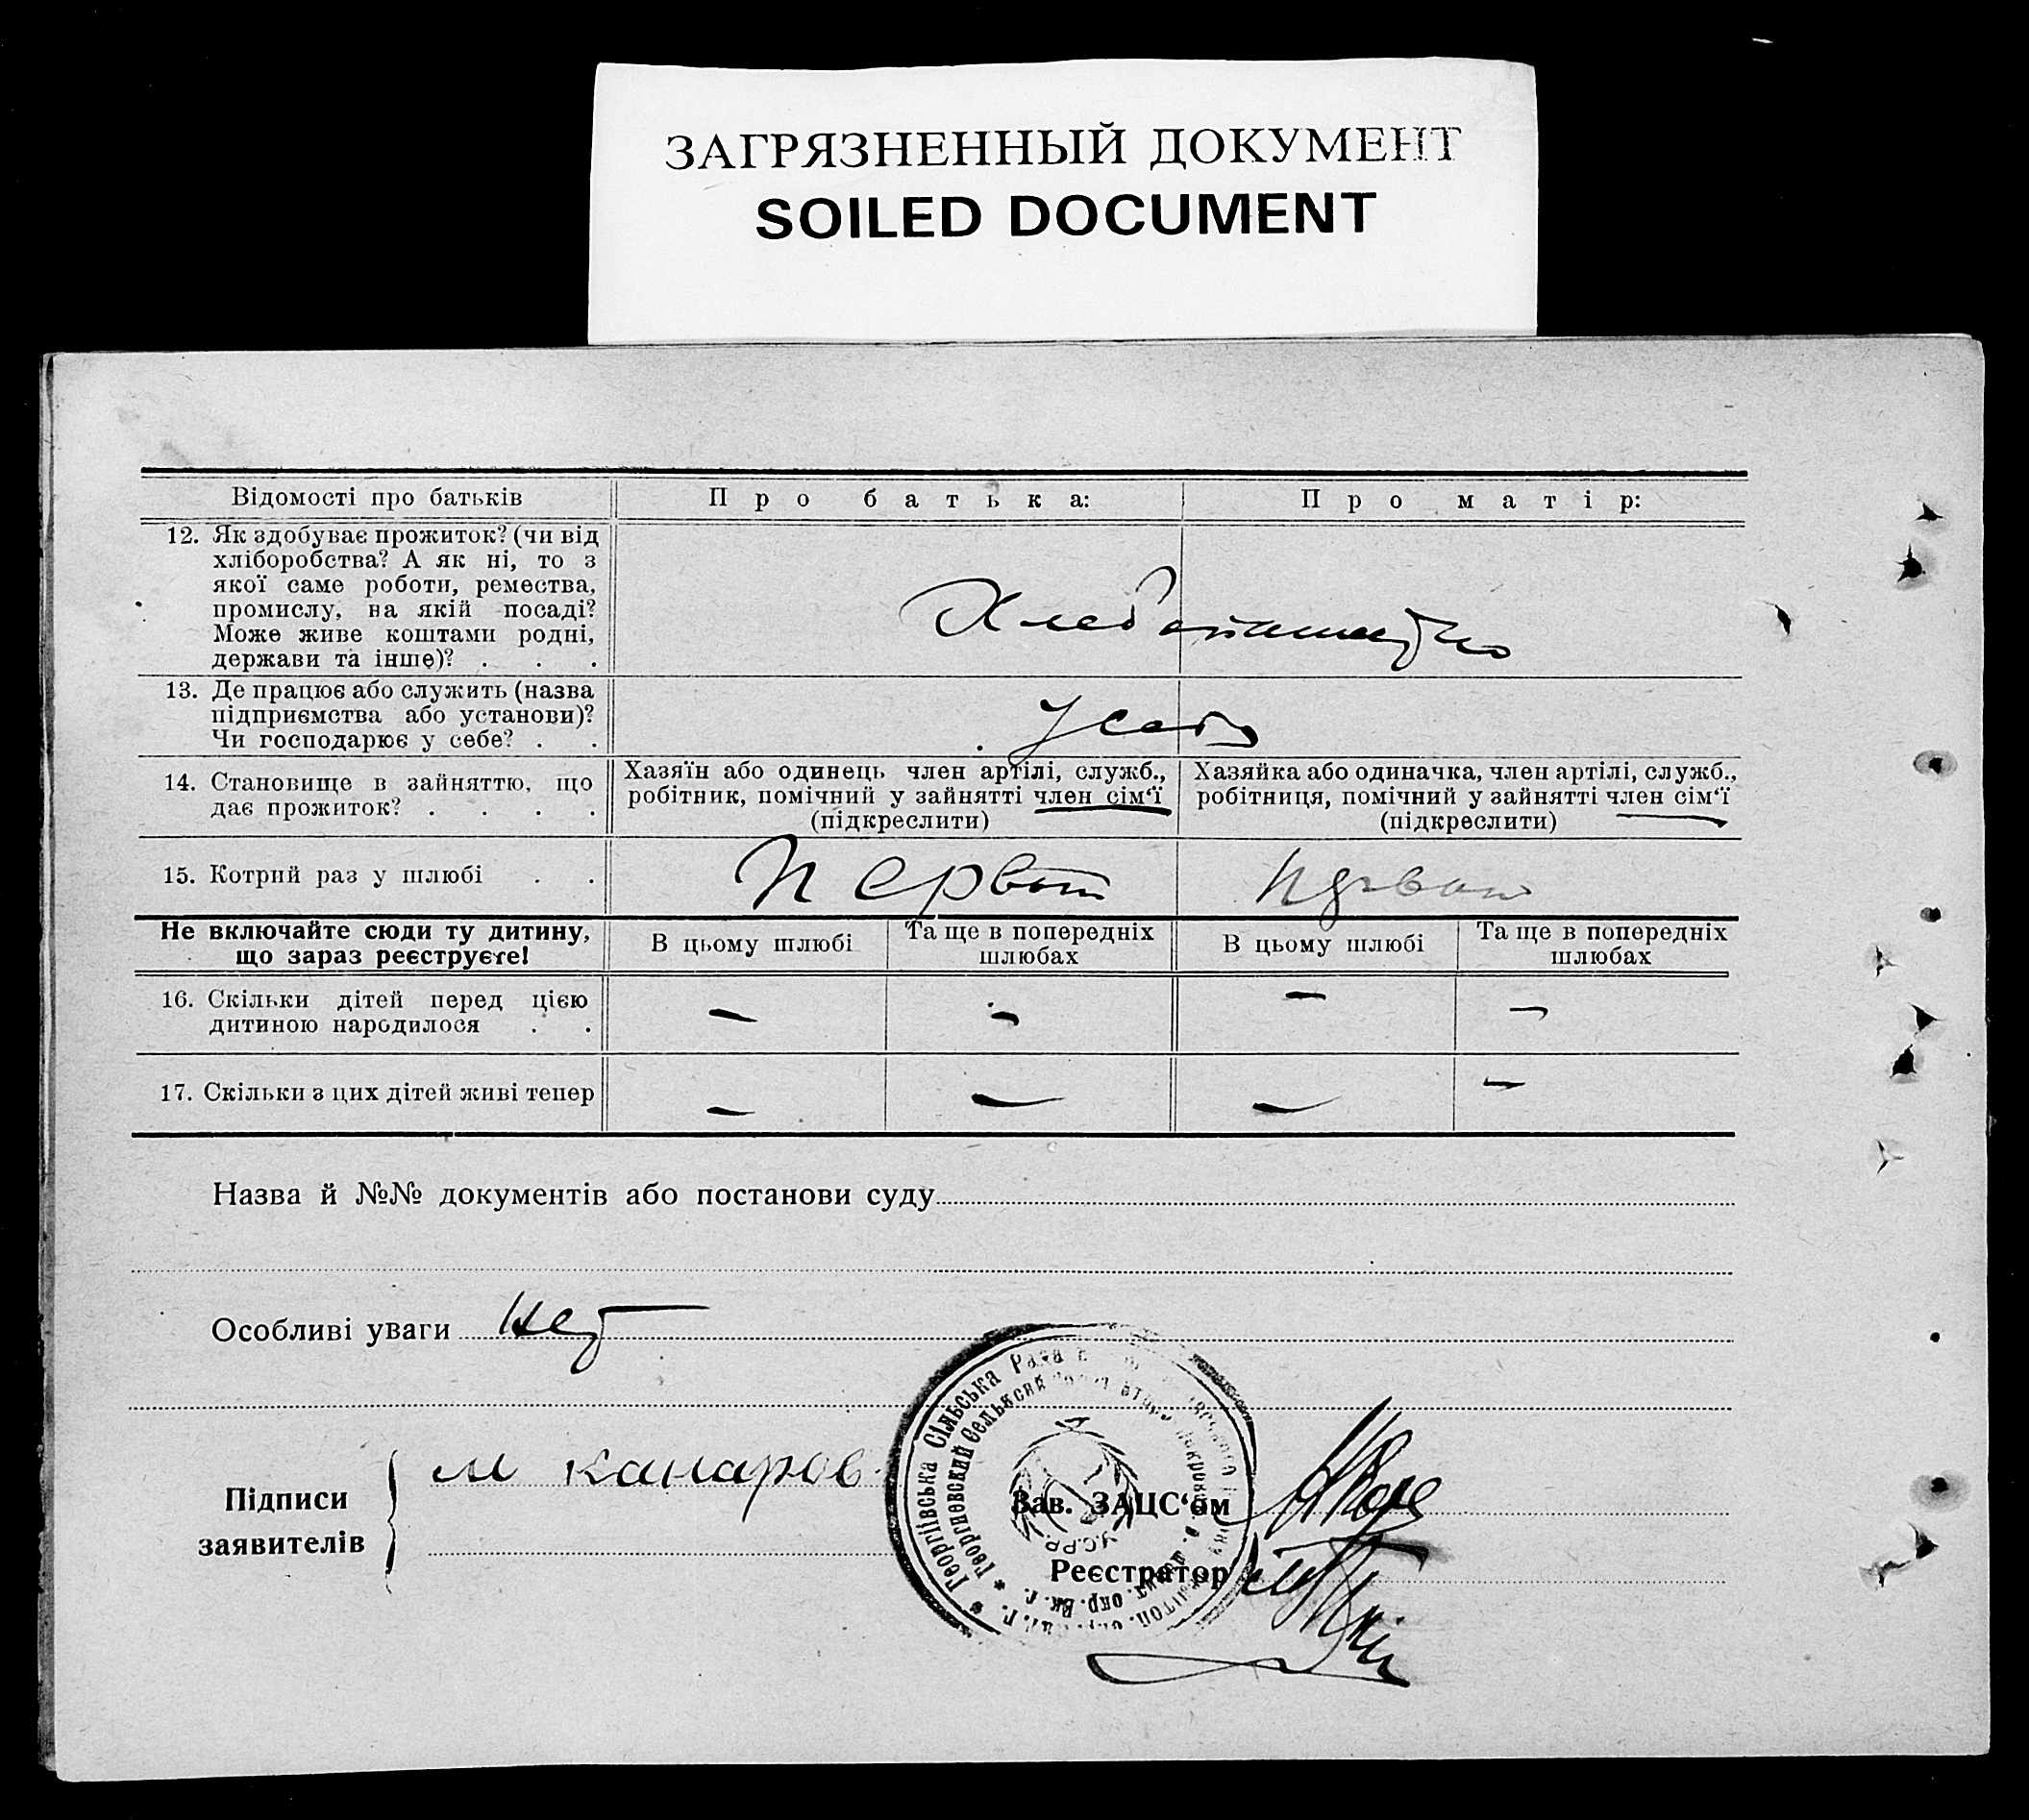 ЗАГРЯЗНЕННЫЙ ДОКУМЕНТ
SOILED DOCUMENT
Відомості про батьків
Про батька:
Про матір:
12. Як здобуває прожиток? (чи від
хліборобства? А як ні, то з
якої саме роботи, ремества,
промислу, на якій посаді?
Може живе коштами родні,
держави та інше)? . . .
Хлебопашество
13. Де працює або служить (назва
підприємства або установи)?
Чи господарює у себе? . .
У себя
14. Становище в зайняттю, що
дає прожиток? . . . .
Хазяїн або одинець член артілі, служб.,
робітник, помічний у зайнятті член сім'ї
(підкреслити)
Хазяйка або одиначка, член артілі, служб.,
робітниця, помічний у зайнятті член сім'ї
(підкреслити)
15. Котрий раз у шлюбі . .
Первый
Первый
Не включайте сюди ту дитину,
що зараз реєструєте!
В цьому шлюбі
Та ще в попередніх
шлюбах
В цьому шлюбі
Та ще в попередніх
шлюбах
16. Скільки дітей перед цією
дитиною народилося . .
— — — —
17. Скільки з цих дітей живі тепер
— — — —
Назва й №№ документів або постанови суду
Особливі уваги нет
Підписи
заявителів
м канаров
Зав. ЗАЦС'ом
Реєстратор
Георгіївська Сільська Рада
Георгиевский Сельский
У.С.Р.Р.